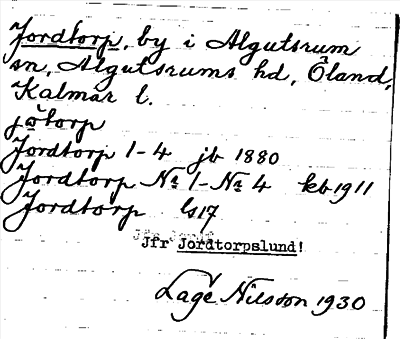 Jordtorp, by i Algutsrum
sn, Algutsrums hd, Öland,
Kalmar l.
jötorp
Jordtorp 1-4 jb 1880
Jordtorp Na 1-Na 4 kb 1911
Jordtorp ls 17
Jfr Jordtorpslund!
Lage Nilsson 1930